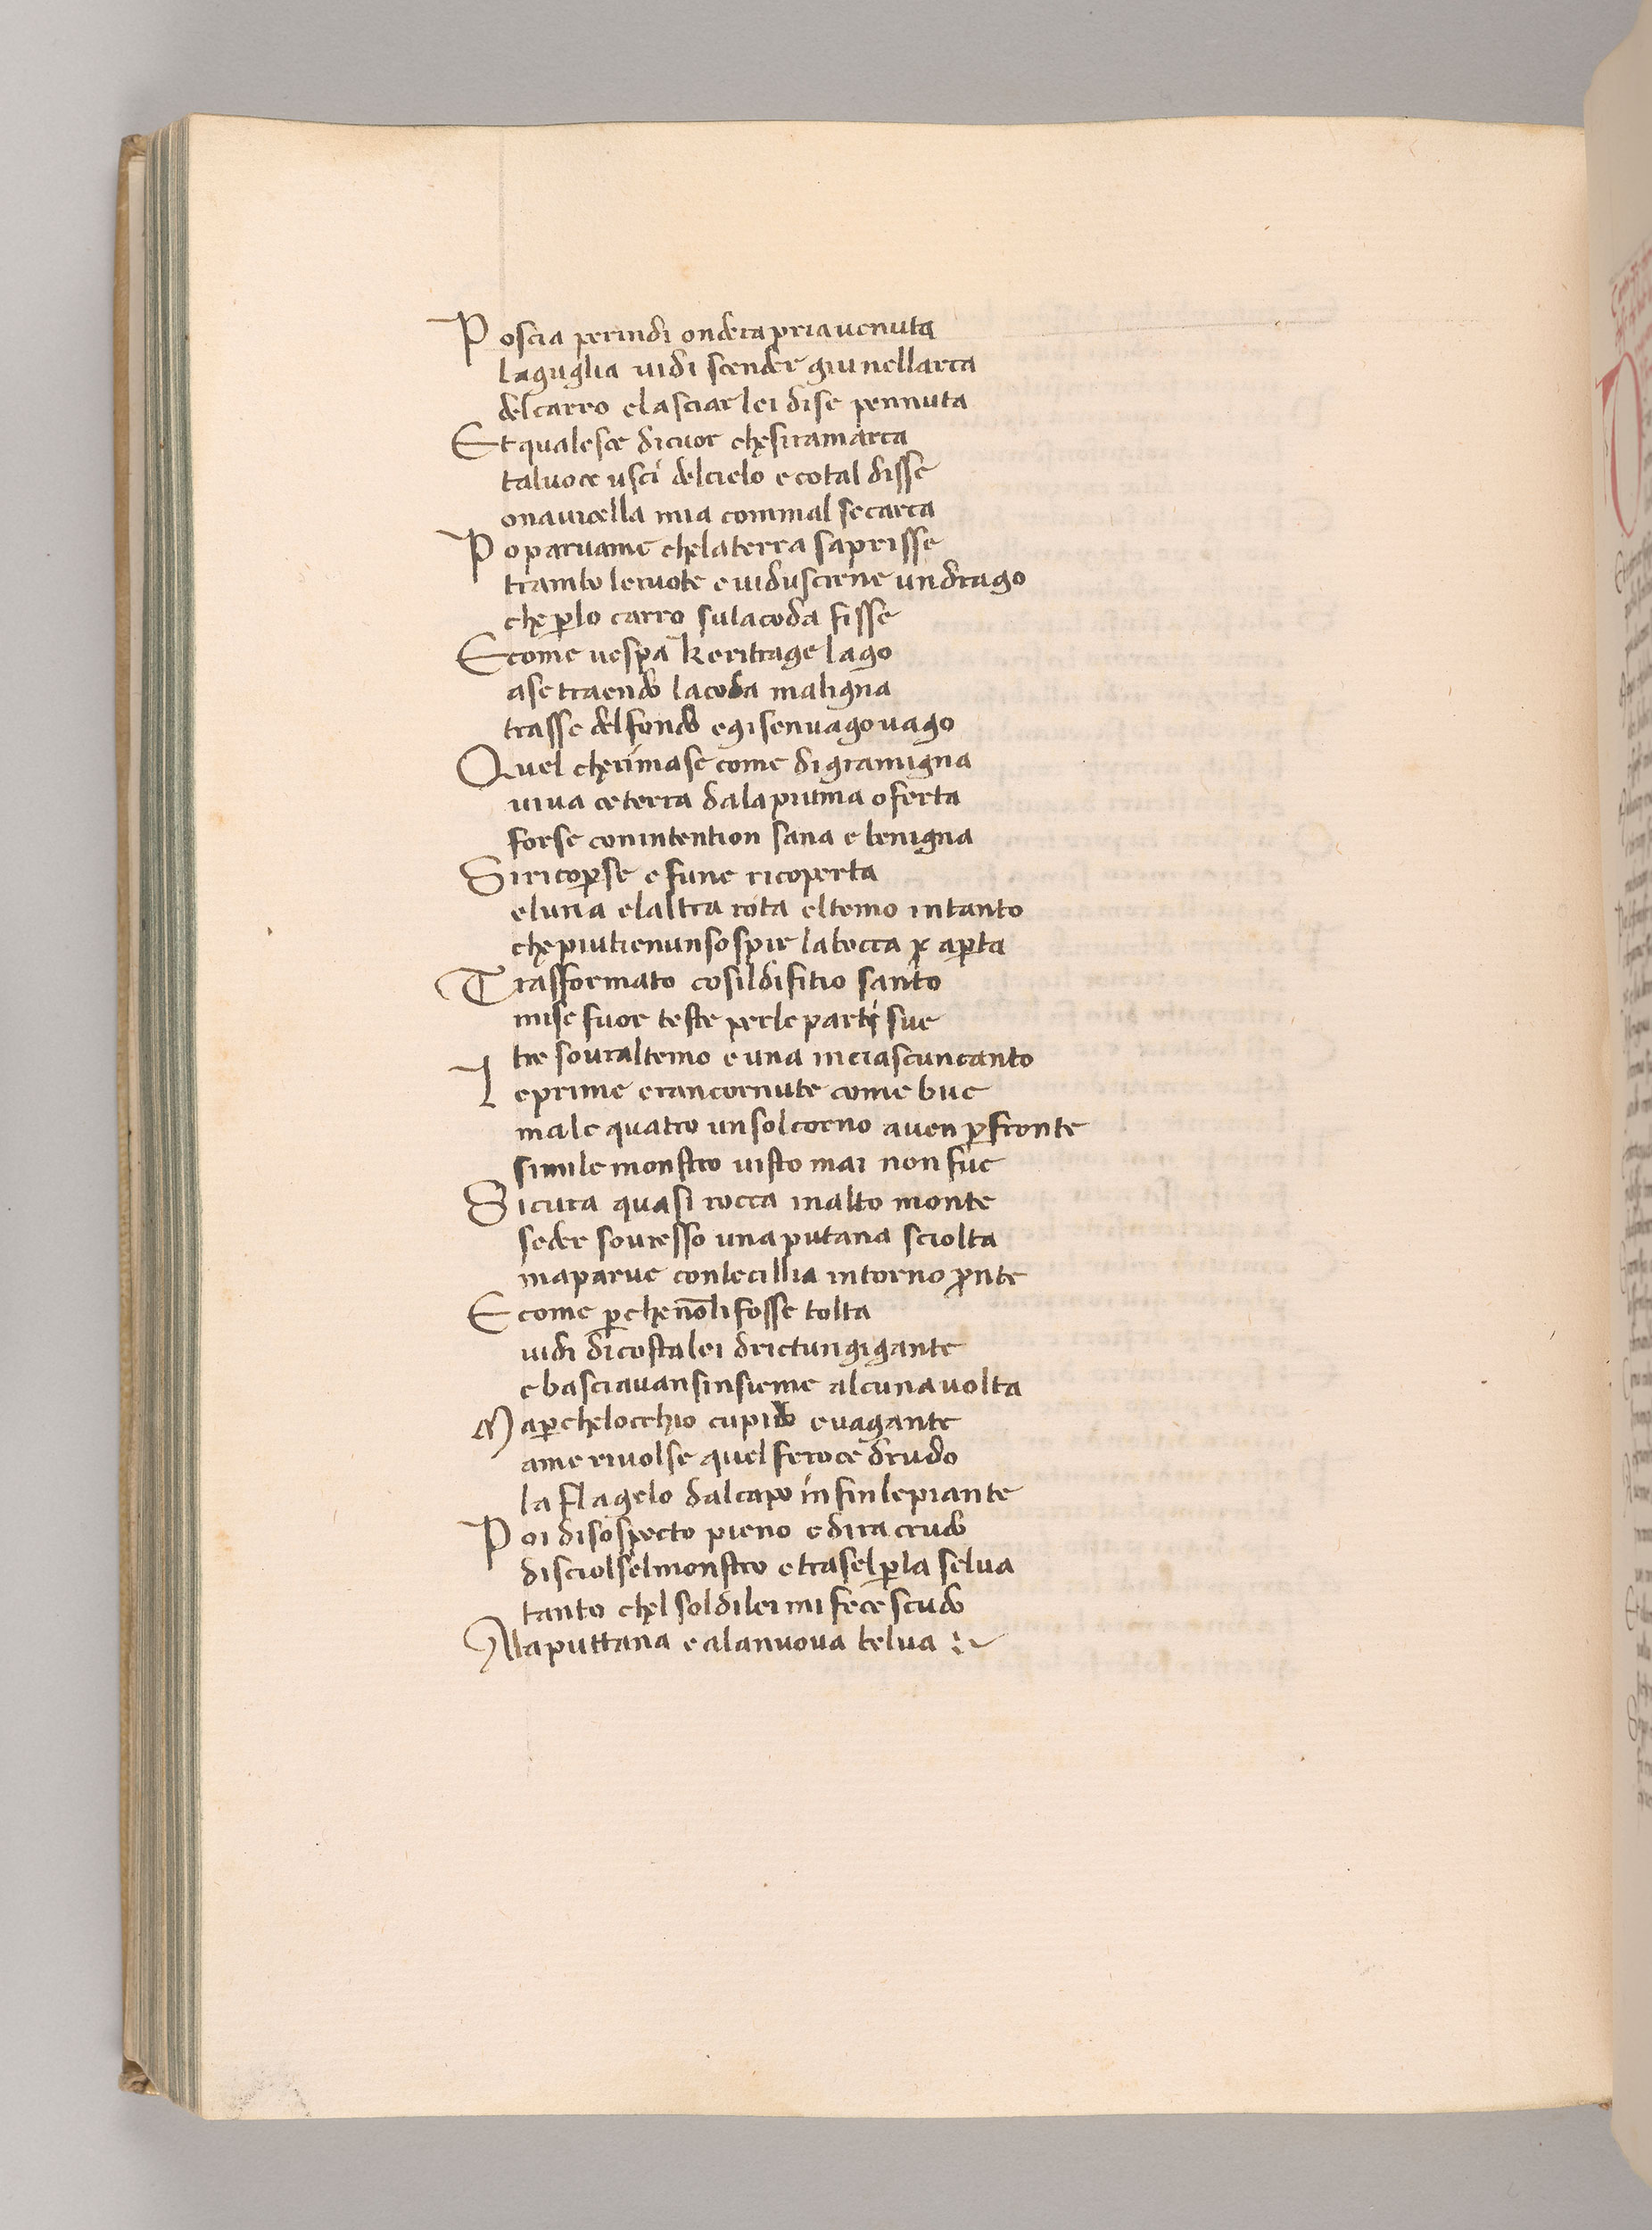 Poscia perindi onderapriavenuta
laguglia vidi scender giunellarca
delcarro elasciarlei dise pennuta
Etqualesce dicuor chesiramarca
talvoce uscí delcielo e cotal disse
onavicella mia commal secarca
Poparvame chelaterra saprisse
trambo leruote evidusciene undrago
che ꝑlo carro sulacoda fisse
Ecome vespa keritrage lago
asetraendo lacoda maligna
trasse delfondo egisenvagovago
Quel cherimase come digramigna
viva ceterra dalapiuma oferta
forse conintention sana e benigna
Siricoꝑse e fune ricoperta
eluna elaltra rota eltemo intanto
chepiutienunsospir labocca ꝑ aꝑta
Trasformato cosildifitio santo
mise fuor teste perle parti sue
tre sovraltemo e una inciascuncanto
Leprime erancornute come bue
male quatro unsolcorno aven ꝑfronte
simile monstro visto mai non fue
Sicura quasi rocca inalto monte
seder sovresso una putana sciolta
maparve conlecillia intorno ꝓnte
Ecome ꝑchenōlifosse tolta
vidi dicostalei drictungigante
ebasciavansinsieme alcunavolta
Maꝑchelocchio cupido evagante
ame rivolse quel feroce drudo
la flagelo dalcapo infinlepiante
Poi disospecto pieno edira crudo
disciolselmonstro etraselꝑla selva
tanto chel soldilei mi fece scudo
Alaputtana ealanuova belva